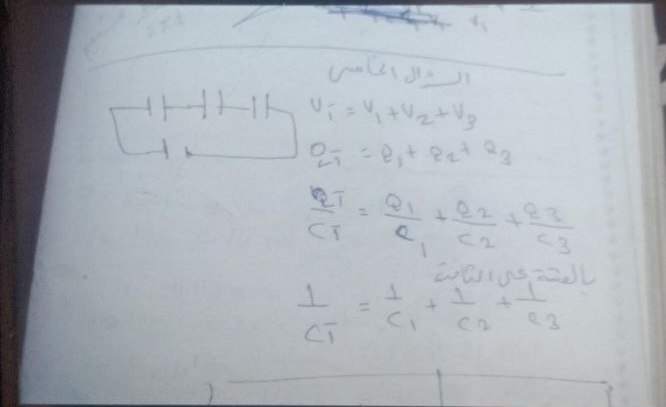 السؤال الخامس
VT = V1 + V2 + V3
QT = Q1 + Q2 + Q3
QT/CT = Q1/C1 + Q2/C2 + Q3/C3
بالقسمة على الثابتة
1/CT = 1/C1 + 1/C2 + 1/C3